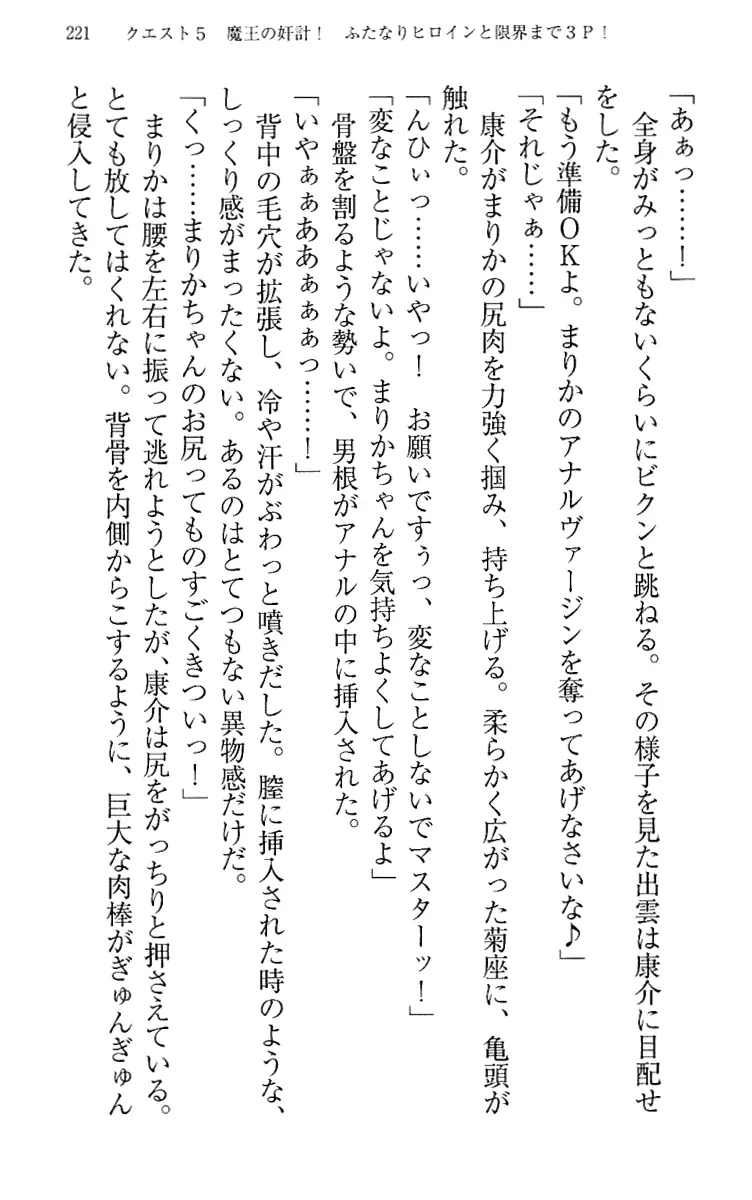 221　クエスト5　魔王の奸計！　ふたなりヒロインと限界まで3P！
「あぁっ……！」
　全身がみっともないくらいにビクンと跳ねる。その様子を見た出雲は康介に目配せ
をした。
「もう準備OKよ。まりかのアナルヴァージンを奪ってあげなさいな♪」
「それじゃぁ……」
　康介がまりかの尻肉を力強く掴み、持ち上げる。柔らかく広がった菊座に、亀頭が
触れた。
「んひぃっ……いやっ！　お願いですぅっ、変なことしないでマスターッ！」
「変なことじゃないよ。まりかちゃんを気持ちよくしてあげるよ」
　骨盤を割るような勢いで、男根がアナルの中に挿入された。
「いやぁぁああぁぁぁっ……！」
　背中の毛穴が拡張し、冷や汗がぶわっと噴きだした。膣に挿入された時のような、
しっくり感がまったくない。あるのはとてつもない異物感だけだ。
「くっ……まりかちゃんのお尻ってものすごくきついっ！」
　まりかは腰を左右に振って逃れようとしたが、康介は尻をがっちりと押さえている。
とても放してはくれない。背骨を内側からこするように、巨大な肉棒がぎゅんぎゅん
と侵入してきた。